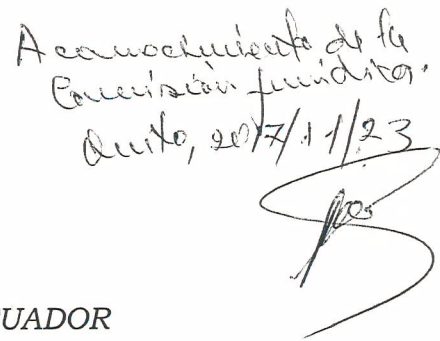 A conocimiento de la
Comisión Jurídica.
Quito, 2017/11/23
CUADOR